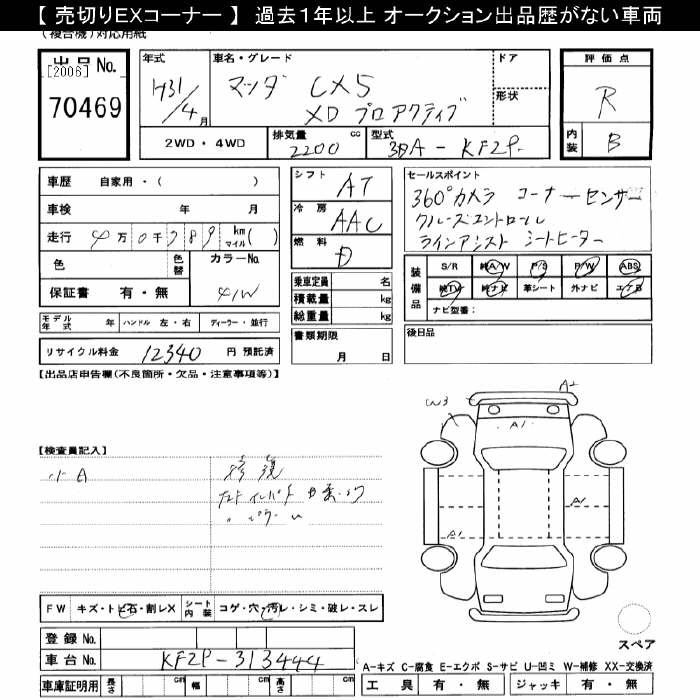 【 売切りEXコーナー 】 過去１年以上 オークション出品歴がない車両
(複合機)対応用紙
出品 No.
[2006]
70469
年式
H31/4 月
車名・グレード
マツダ CX5
XD プロアクティブ
ドア
形状
評価点
R
内装 B
2WD ・ 4WD
排気量 cc
2200
型式
3DA-KF2P
車歴 自家用・( )
車検 年 月
走行 4万0千789 km マイル( )
色 色替 カラーNo.
保証書 有・無 41W
モデル年式 年 ハンドル 左・右 ディーラー・並行
リサイクル料金 12340 円 預託済
シフト AT
冷房 AAC
燃料 D
乗車定員 名
積載量 kg
総重量 kg
書類期限
月 日
セールスポイント
360°カメラ コーナーセンサー
クルーズコントロール
ラインアシスト シートヒーター
装備品
S/R 純A/W P/S P/W ABS
純TV 純ナビ 革シート 外ナビ エアB
ナビ型番：
後日品
【出品店申告欄(不良箇所・欠品・注意事項等)】
A2
W3
A1
A1
A1
【検査員記入】
小A
修復
FW キズ・トビ石・割レX シート内装 コゲ・穴・汚レ・シミ・破レ・スレ
登録 No.
車台 No. KF2P-313444
車庫証明用 長さ cm 幅 cm 高さ cm
スペア
A−キズ C−腐食 E−エクボ S−サビ U−凹ミ W−補修 XX−交換済
工具 有・無 ジャッキ 有・無